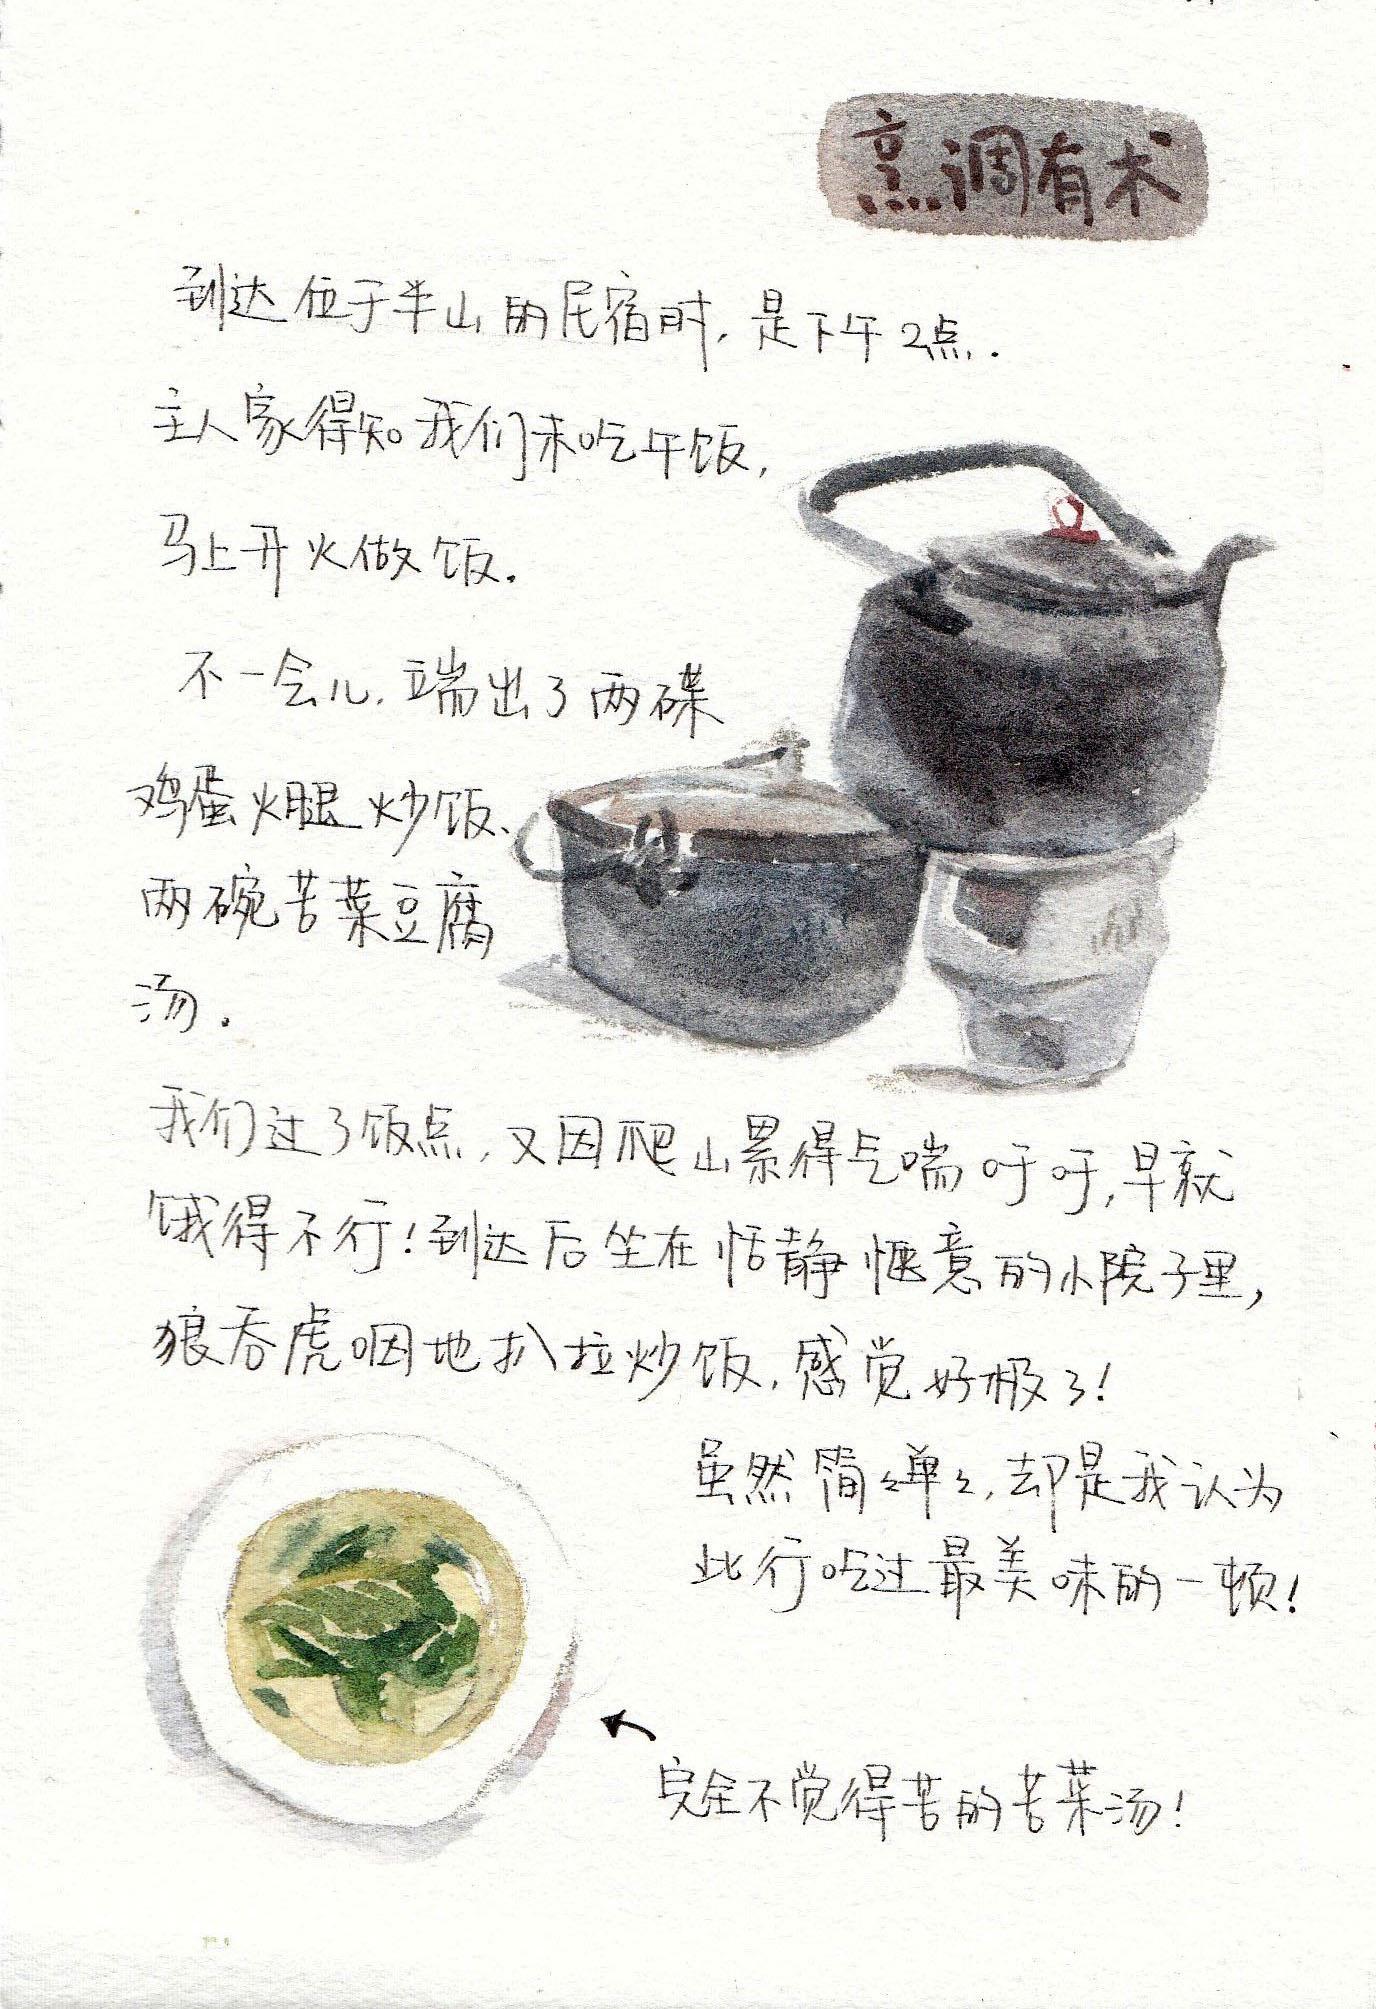 烹调有术
到达位于半山的民宿时，是下午2点．
主人家得知我们未吃午饭，
马上开火做饭．
不一会儿，端出了两碟
鸡蛋火腿炒饭、
两碗苦菜豆腐
汤．
我们过了饭点，又因爬山累得气喘吁吁，早就
饿得不行！到达后坐在恬静惬意的小院子里，
狼吞虎咽地扒拉炒饭，感觉好极了！
虽然简〻单〻，却是我认为
此行吃过最美味的一顿！
完全不觉得苦的苦菜汤！